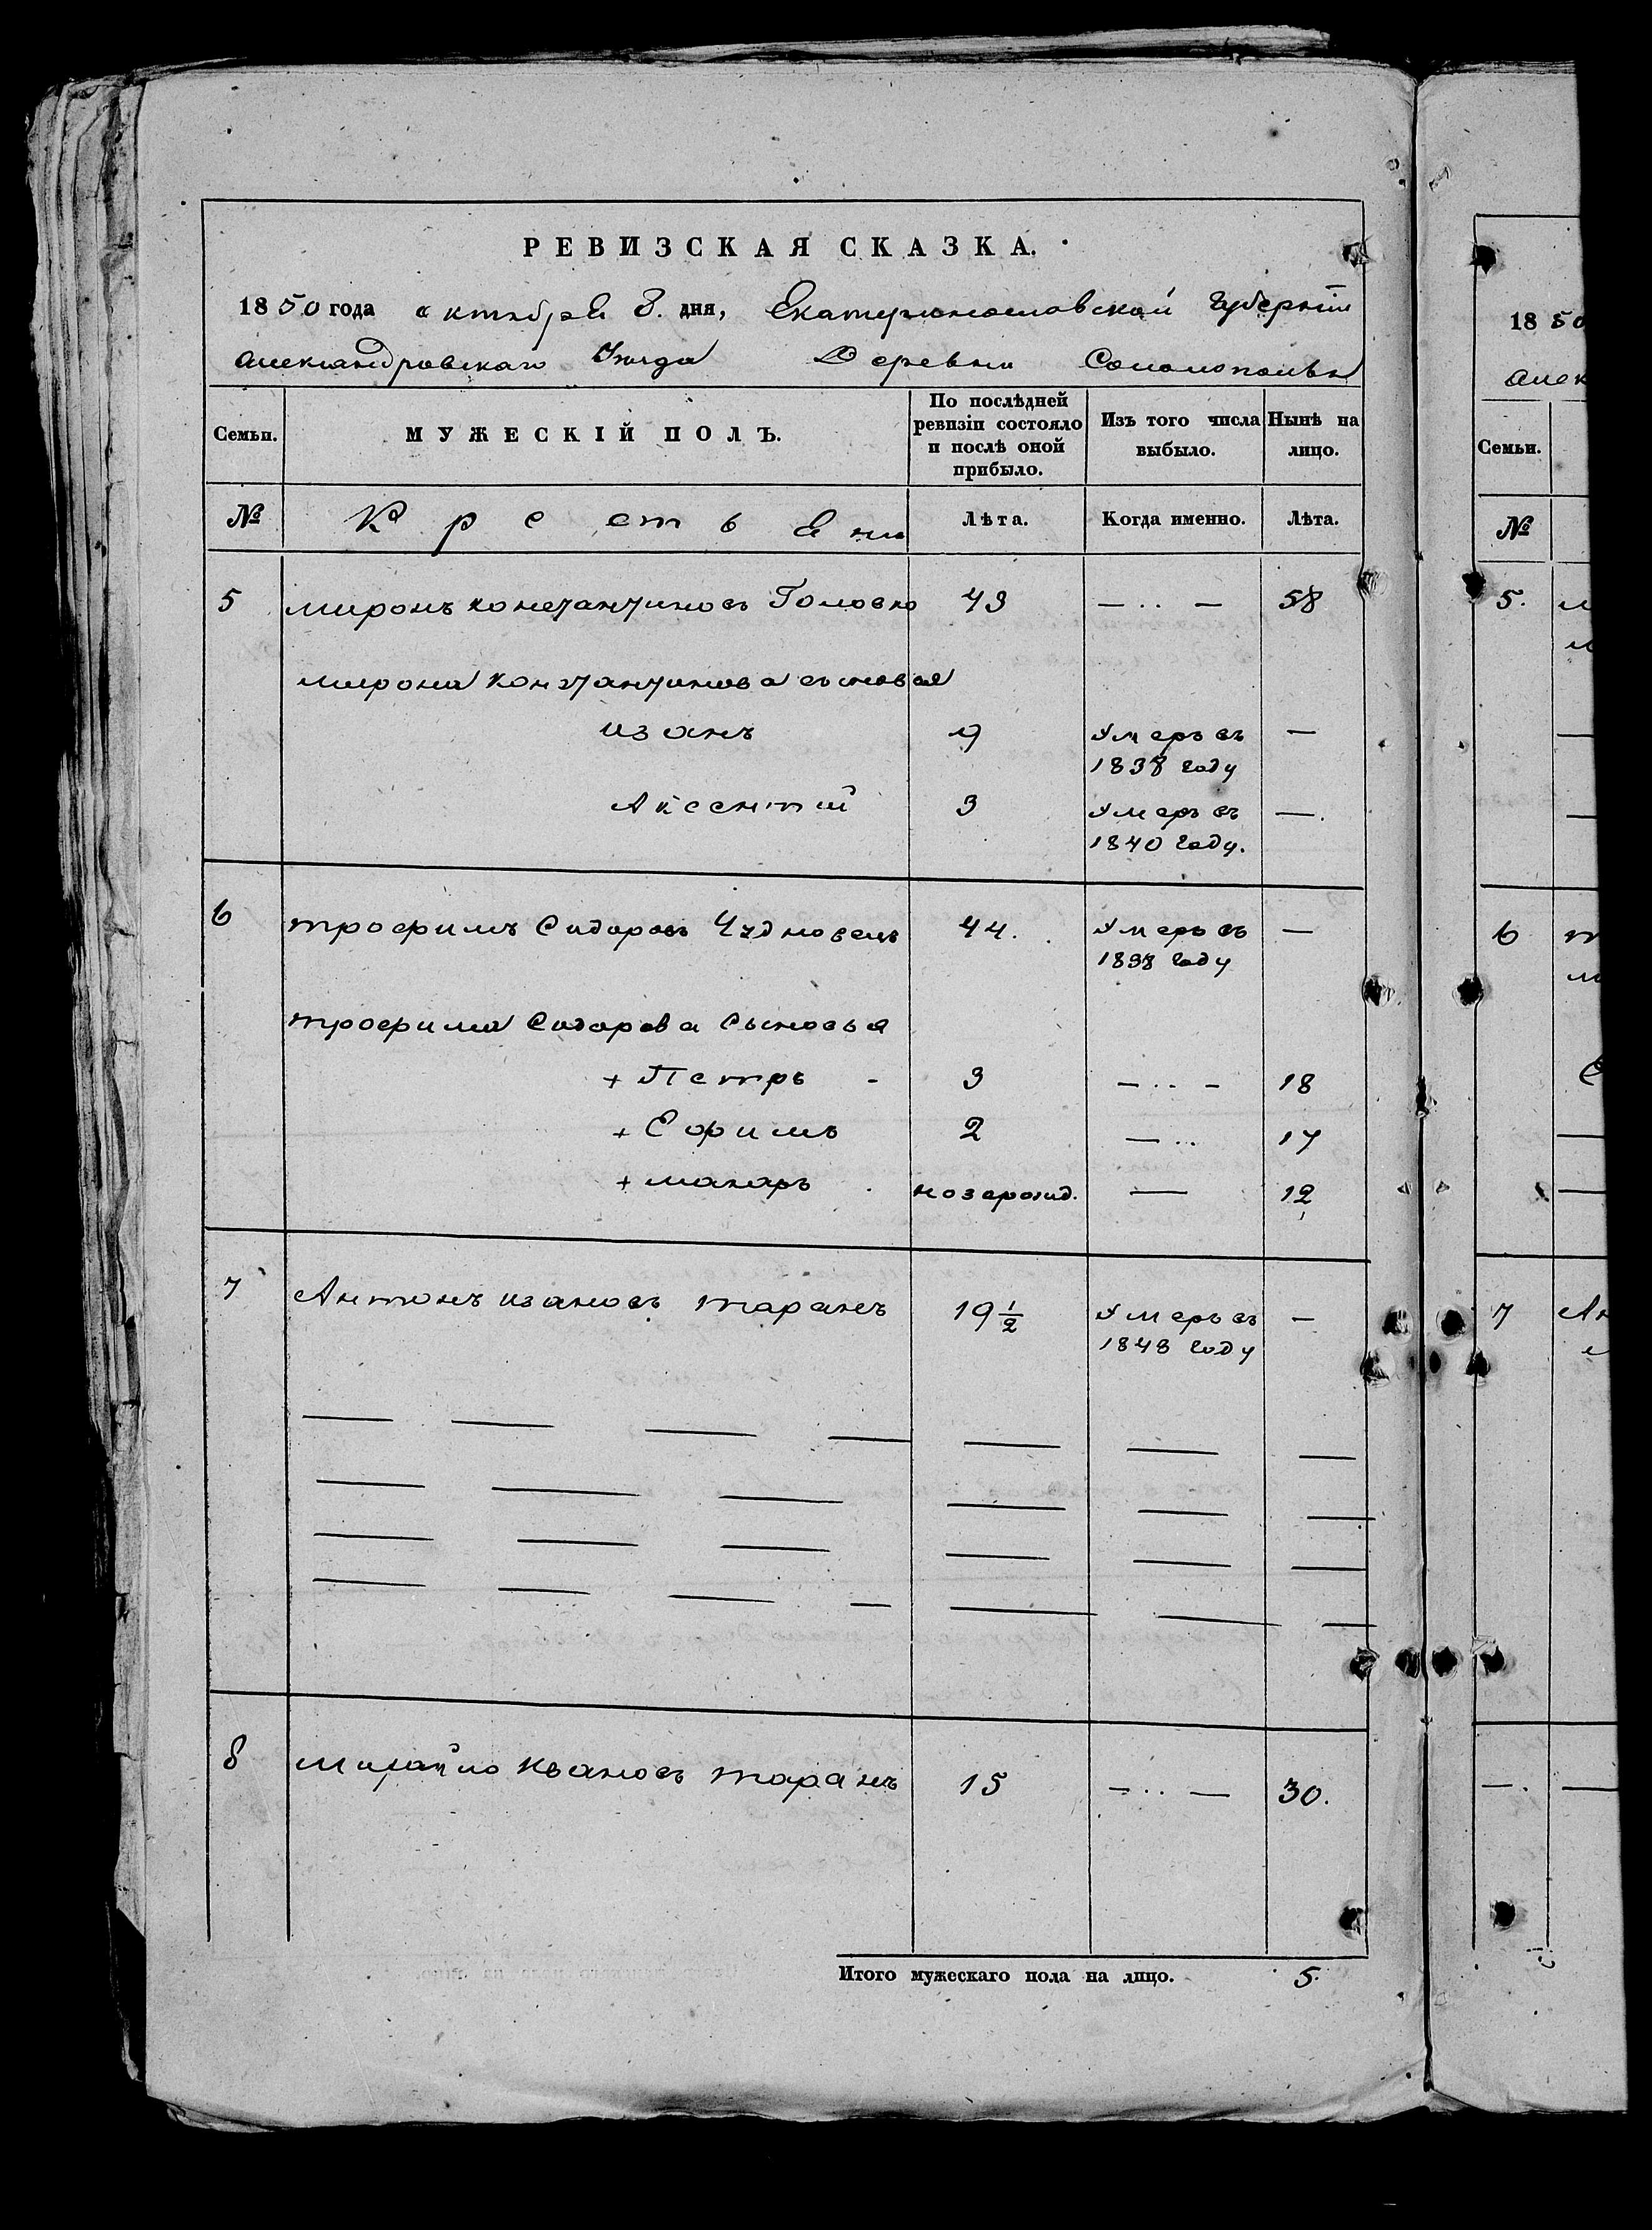 РЕВИЗСКАЯ СКАЗКА.
1850 года октября 8. дня, Екатеринославской Губернiи
Александровскаго Уѣзда Деревни
Семьи. МУЖЕСКІЙ ПОЛЪ. По послѣдней ревизіи состояло и послѣ оной прибыло. Изъ того числа выбыло. Нынѣ на лицо.
№ Крестьяни Лѣта. Когда именно. Лѣта.
5 Миронъ Константиновъ Головко 43 — .. — 58
Мирона Константинова сыновья
Иванъ 9 Умеръ въ —
1838 году
Аксентий 3 Умеръ въ —.
1840 году.
6 Трофимъ Сидоровъ 44. Умеръ въ —
1838 году
Трофима Сидорова Сыновья
+ Петръ - 3 — .. — 18
+ Ефимъ 2 — .. 17
+ Макаръ . новорожд. — 12
7 Антонъ Ивановъ Таранъ 19 1/2 Умеръ въ —
1843 году
8 Михайло Ивановъ Таранъ 15 — .. — 30.
Итого мужескаго пола на лицо. 5.
1850
Алек
Семьи.
№
5.
6
7